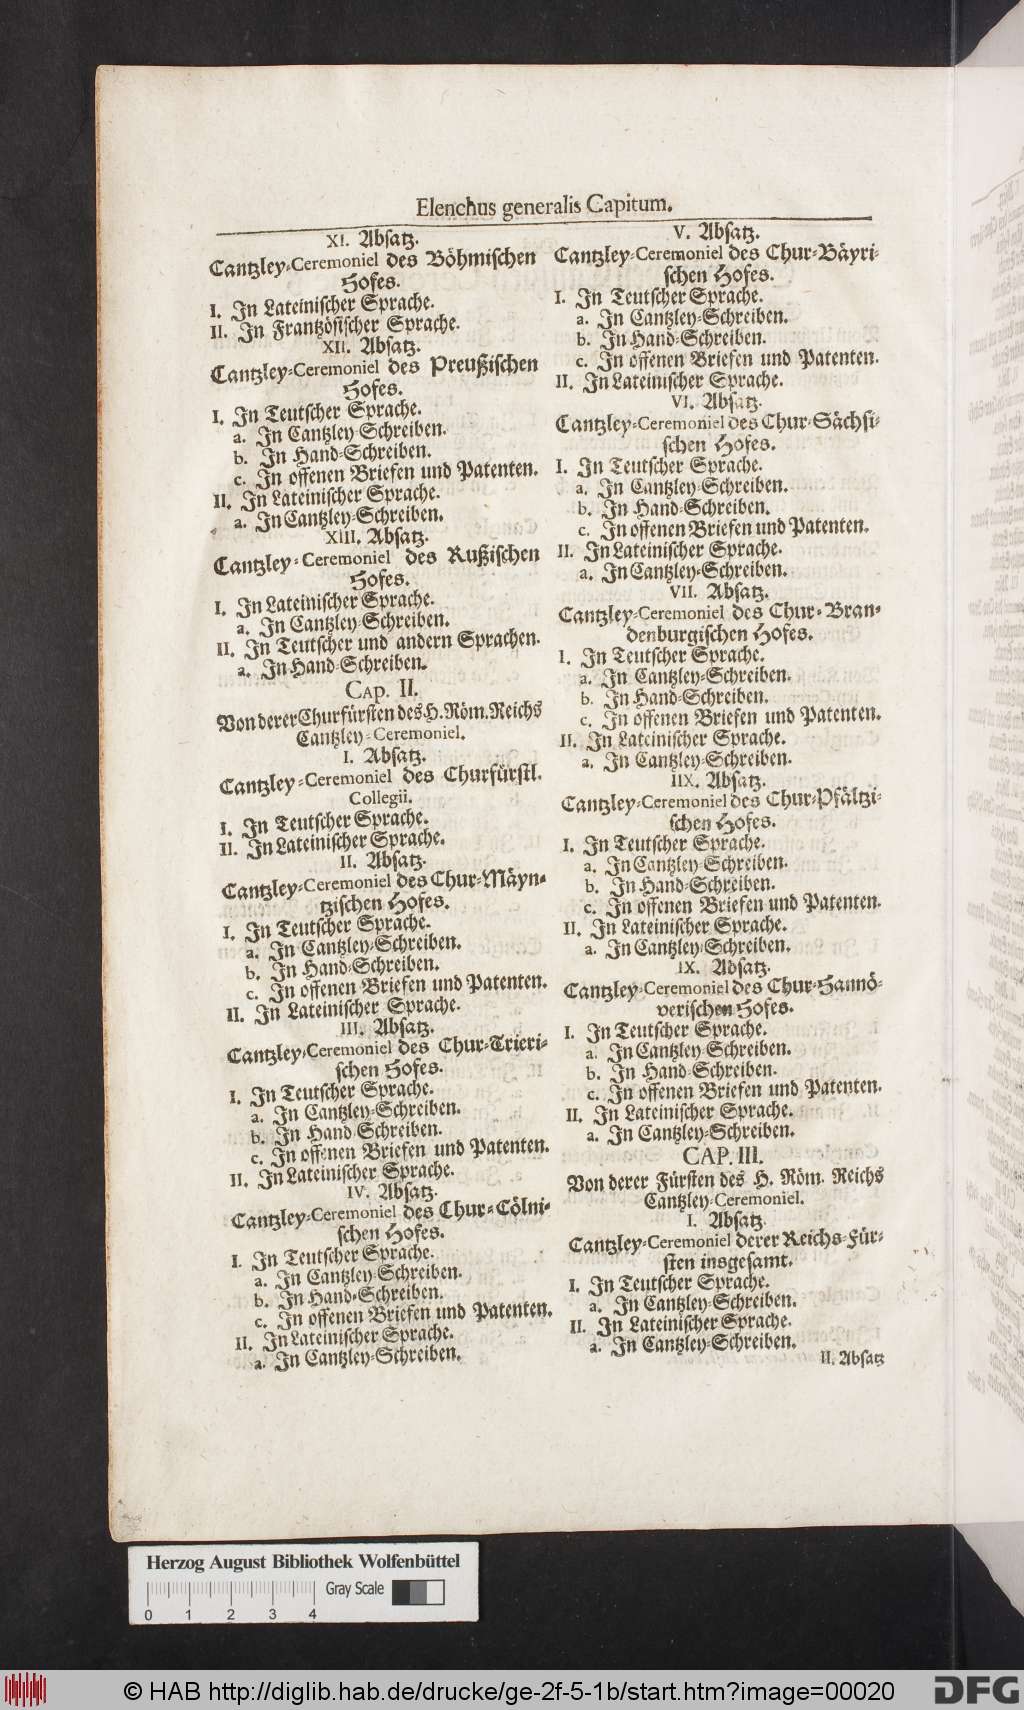 Elenchus generalis Capitum.
XI. Absatz.
Cantzley-Ceremoniel des Böhmischen
Hofes.
I. In Lateinischer Sprache.
II. In Frantzösischer Sprache.
XII. Absatz.
Cantzley-Ceremoniel des Preußischen
Hofes.
I. In Teutscher Sprache.
a. In Cantzley-Schreiben.
b. In Hand-Schreiben.
c. In offenen Briefen und Patenten.
II. In Lateinischer Sprache.
a. In Cantzley-Schreiben.
XIII. Absatz.
Cantzley-Ceremoniel des Rußischen
Hofes.
I. In Lateinischer Sprache.
a. In Cantzley-Schreiben.
II. In Teutscher und andern Sprachen.
a. In Hand-Schreiben.
CAp. II.
Von derer Churfürsten des H. Röm. Reichs
Cantzley-Ceremoniel.
I. Absatz.
Cantzley-Ceremoniel des Churfürstl.
Collegii.
I. In Teutscher Sprache.
II. In Lateinischer Sprache.
II. Absatz.
Cantzley-Ceremoniel des Chur-Mäyn-
tzischen Hofes.
I. In Teutscher Sprache.
a. In Cantzley-Schreiben.
b. In Hand-Schreiben.
c. In offenen Briefen und Patenten.
II. In Lateinischer Sprache.
III. Absatz.
Cantzley-Ceremoniel des Chur-Trieri-
schen Hofes.
I. In Teutscher Sprache.
a. In Cantzley-Schreiben.
b. In Hand-Schreiben.
c. In offenen Briefen und Patenten.
II. In Lateinischer Sprache.
IV. Absatz.
Cantzley-Ceremoniel des Chur-Cölni-
schen Hofes.
I. In Teutscher Sprache.
a. In Cantzley-Schreiben.
b. In Hand-Schreiben.
c. In offenen Briefen und Patenten.
II. In Lateinischer Sprache.
a. In Cantzley-Schreiben.
V. Absatz.
Cantzley-Ceremoniel des Chur-Bäyri-
schen Hofes.
I. In Teutscher Sprache.
a. In Cantzley-Schreiben.
b. In Hand-Schreiben.
c. In offenen Briefen und Patenten.
II. In Lateinischer Sprache.
VI. Absatz.
Cantzley-Ceremoniel des Chur-Sächsi-
schen Hofes.
I. In Teutscher Sprache.
a. In Cantzley-Schreiben.
b. In Hand-Schreiben.
c. In offenen Briefen und Patenten.
II. In Lateinischer Sprache.
a. In Cantzley-Schreiben.
VII. Absatz.
Cantzley-Ceremoniel des Chur-Bran-
denburgischen Hofes.
I. In Teutscher Sprache.
a. In Cantzley-Schreiben.
b. In Hand-Schreiben.
c. In offenen Briefen und Patenten.
II. In Lateinischer Sprache.
a. In Cantzley-Schreiben.
IIX. Absatz.
Cantzley-Ceremoniel des Chur-Pfältzi-
schen Hofes.
I. In Teutscher Sprache.
a. In Cantzley-Schreiben.
b. In Hand-Schreiben.
c. In offenen Briefen und Patenten.
II. In Lateinischer Sprache.
a. In Cantzley-Schreiben.
IX. Absatz.
Cantzley-Ceremoniel des Chur-Hannö-
verischen Hofes.
I. In Teutscher Sprache.
a. In Cantzley-Schreiben.
b. In Hand-Schreiben.
c. In offenen Briefen und Patenten.
II. In Lateinischer Sprache.
a. In Cantzley-Schreiben.
CAP. III.
Von derer Fürsten des H. Röm. Reichs
Cantzley-Ceremoniel.
I. Absatz.
Cantzley-Ceremoniel derer Reichs-Für-
sten insgesamt.
I. In Teutscher Sprache.
a. In Cantzley-Schreiben.
II. In Lateinischer Sprache.
a. In Cantzley-Schreiben.
II. Absatz
Herzog August Bibliothek Wolfenbüttel
Gray Scale
0 1 2 3 4
© HAB http://diglib.hab.de/drucke/ge-2f-5-1b/start.htm?image=00020
DFG